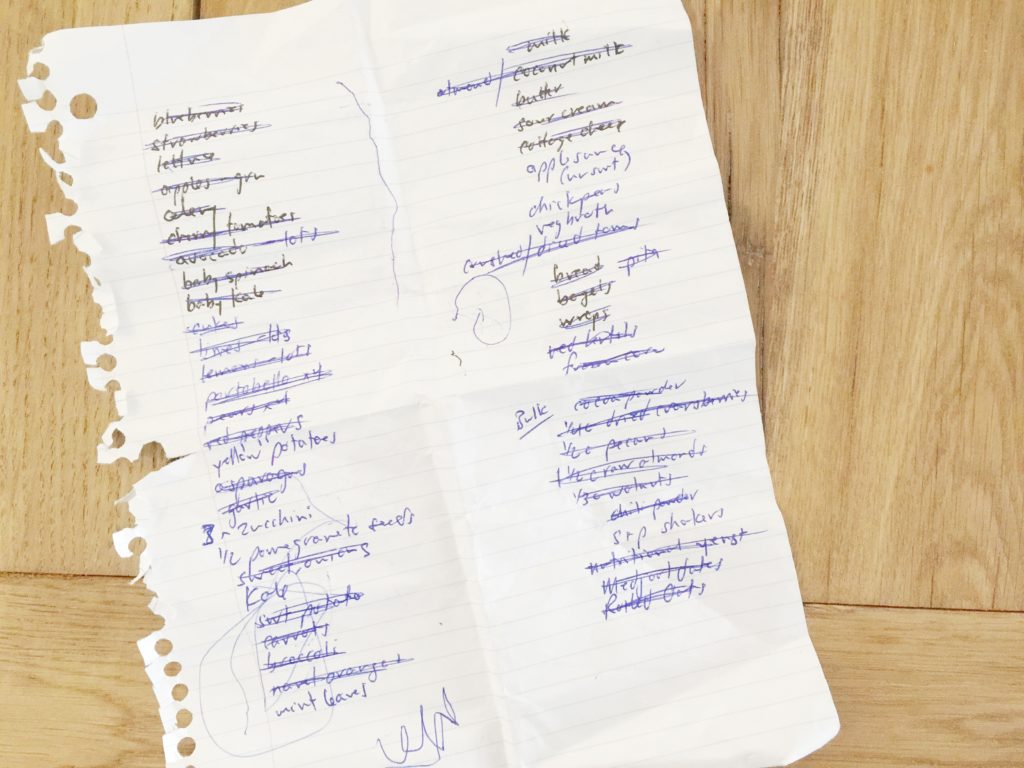 blueberries
strawberries
lettuse
apples - grn
celery
cherry tomatoes
avocado - lots
baby spinach
baby kale
cukes
limes - lots
lemons - lots
portabello x4
pears x4
red peppers
yellow potatoes
asparagus
garlic
3 zucchini
1/2 pomegranate seeds
sweet onions
Kale
swt potato
carrots
broccoli
navel oranges
mint leaves
milk
almond / coconut milk
butter
sour cream
cottage cheep
applesauce
(unswt)
chickpeas
vegbroth
crushed / dried toms
bread pita
bagels
wraps
red lentils
Bulk
cocoa powder
dried cranberries
pecans
1 1/2 c raw almonds
walnuts
chili powder
s + p shakers
nutritional yeast
Medjool dates
Rolled Oats